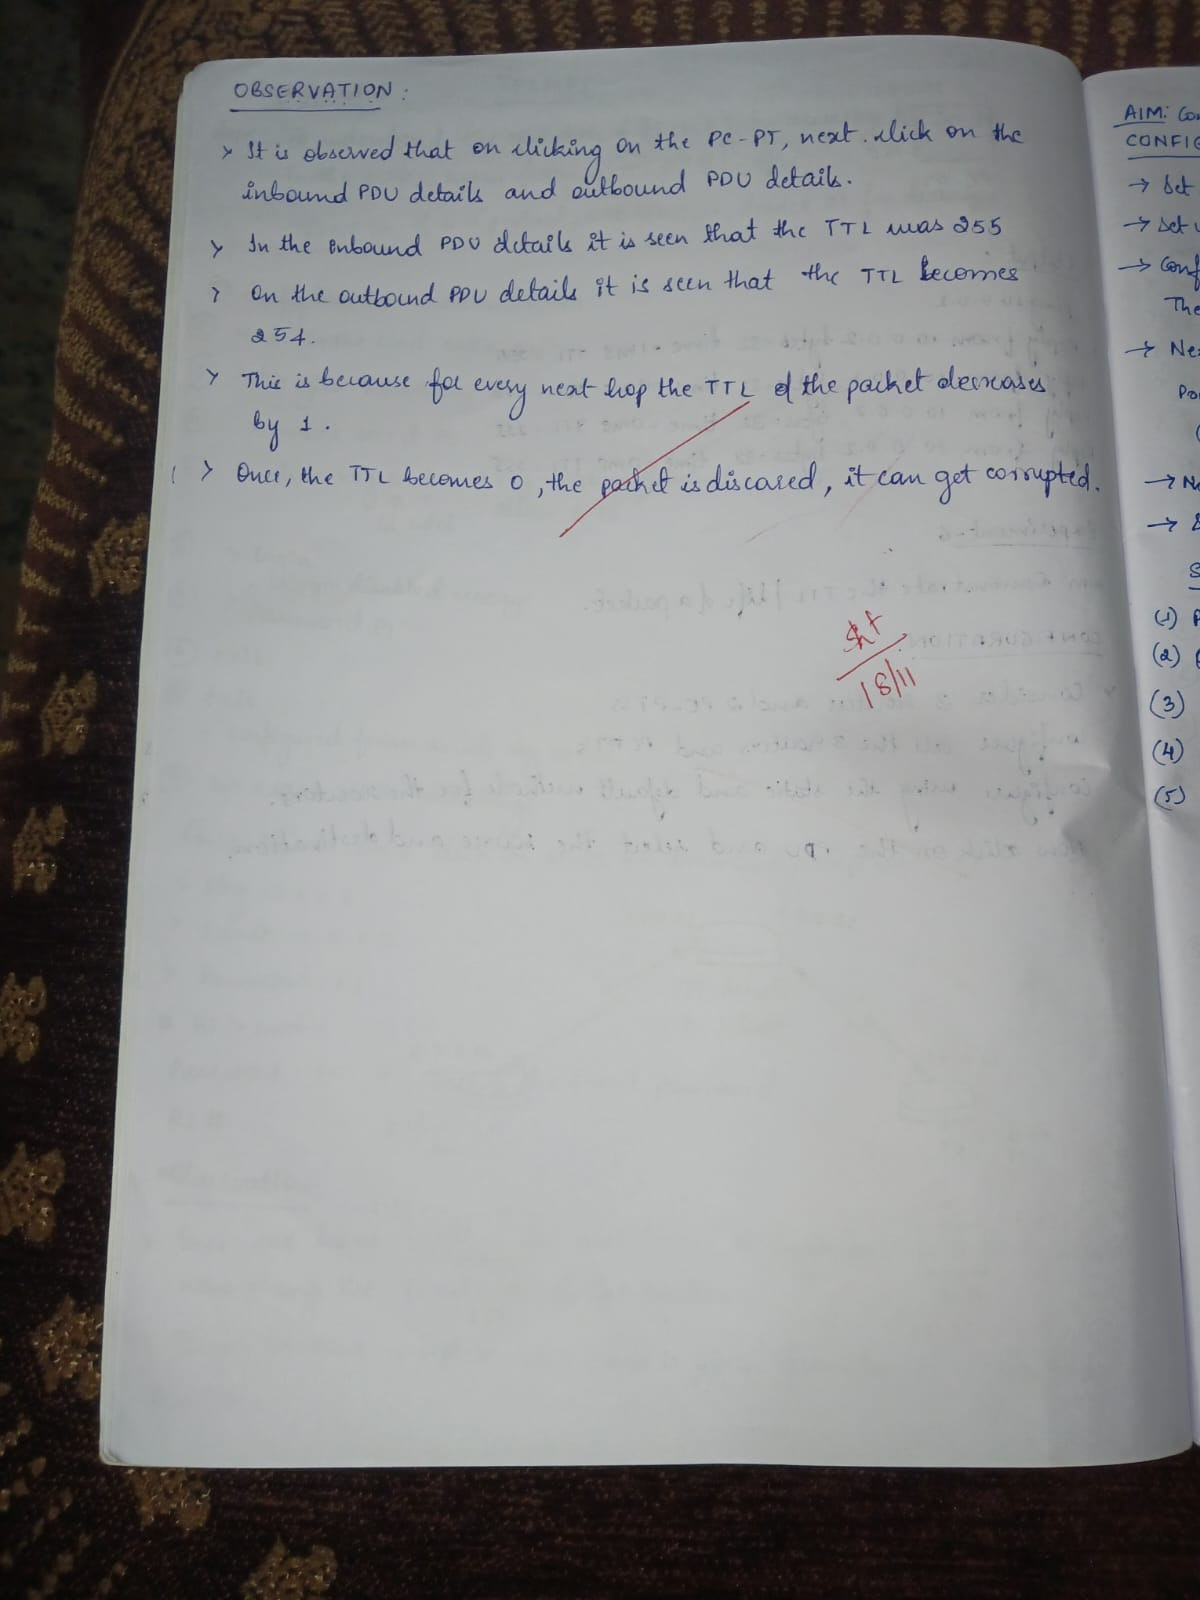 OBSERVATION:
> It is observed that on clicking on the PC-PT, next click on the
inbound PDU details and outbound PDU details.
> In the inbound PDU details it is seen that the TTL was 255
> On the outbound PDU details it is seen that the TTL becomes
254.
> This is because for every next hop the TTL of the packet decreases
by 1.
> Once, the TTL becomes 0, the packet is discared, it can get corrupted.
18/11
AIM: Con
CONFIG
→ Set
→ Set
→ Conf
The
→ Ne
Po
(
→ No
→
S
(1) P
(2)
(3)
(4)
(5)